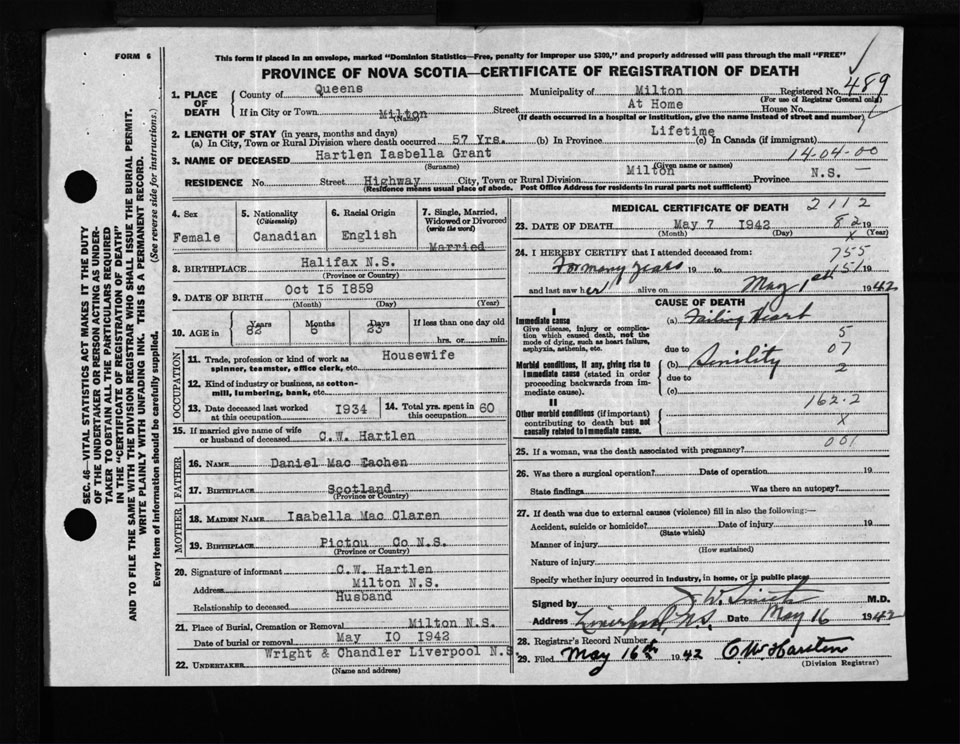 FORM 6
This form if placed in an envelope, marked "Dominion Statistics—Free, penalty for improper use $300," and properly addressed will pass through the mail "FREE"
PROVINCE OF NOVA SCOTIA—CERTIFICATE OF REGISTRATION OF DEATH
489
1. PLACE OF DEATH
County of Queens Municipality of Milton Registered No.
(For use of Registrar General only)
If in City or Town Milton Street At Home House No.
(Name) (If death occurred in a hospital or institution, give the name instead of street and number)
2. LENGTH OF STAY (in years, months and days)
(a) In City, Town or Rural Division where death occurred 57 Yrs. (b) In Province Lifetime (c) In Canada (if immigrant)
3. NAME OF DECEASED Hartlen Iasbella Grant 14-04-00
(Surname) (Given name or names)
RESIDENCE No. Street Highway City, Town or Rural Division Milton Province N.S.
(Residence means usual place of abode. Post Office Address for residents in rural parts not sufficient)
4. Sex Female
5. Nationality (Citizenship) Canadian
6. Racial Origin English
7. Single, Married, Widowed or Divorced (write the word) Married
8. BIRTHPLACE Halifax N.S.
(Province or Country)
9. DATE OF BIRTH Oct 15 1859
(Month) (Day) (Year)
10. AGE in Years Months Days If less than one day old
82 6 23 hrs. or min.
OCCUPATION
11. Trade, profession or kind of work as spinner, teamster, office clerk, etc. Housewife
12. Kind of industry or business, as cotton-mill, lumbering, bank, etc.
13. Date deceased last worked at this occupation 1934
14. Total yrs. spent in this occupation 60
15. If married give name of wife or husband of deceased C.W. Hartlen
FATHER
16. NAME Daniel Mac Eachen
17. BIRTHPLACE Scotland
(Province or Country)
MOTHER
18. MAIDEN NAME Isabella Mac Claren
19. BIRTHPLACE Pictou Co N.S.
(Province or Country)
20. Signature of informant C.W. Hartlen
Address Milton N.S.
Relationship to deceased Husband
21. Place of Burial, Cremation or Removal Milton N.S.
Date of burial or removal May 10 1942
22. UNDERTAKER Wright & Chandler Liverpool N.S
(Name and address)
MEDICAL CERTIFICATE OF DEATH 2112
23. DATE OF DEATH May 7 1942 82
(Month) (Day) (Year)
x
24. I HEREBY CERTIFY that I attended deceased from: 755
For many years 19 to 451 19
and last saw her alive on May 1st 1942
CAUSE OF DEATH
I
Immediate cause
Give disease, injury or complication which caused death, not the mode of dying, such as heart failure, asphyxia, asthenia, etc.
(a) Failing Heart
5
due to 07
Morbid conditions, if any, giving rise to immediate cause (stated in order proceeding backwards from immediate cause).
(b) Senility 2
due to
(c)
162.2
II
Other morbid conditions (if important) contributing to death but not causally related to immediate cause.
x
001
25. If a woman, was the death associated with pregnancy?
26. Was there a surgical operation? Date of operation 19
State findings Was there an autopsy?
27. If death was due to external causes (violence) fill in also the following:—
Accident, suicide or homicide? Date of injury 19
(State which)
Manner of injury
(How sustained)
Nature of injury
Specify whether injury occurred in industry, in home, or in public place
Signed by J. W. Smith M.D.
Address Liverpool, N.S. Date May 16 1942
28. Registrar's Record Number
29. Filed May 16th 1942 C.W. Hartlen
(Division Registrar)
SEC. 46—VITAL STATISTICS ACT MAKES IT THE DUTY
OF THE UNDERTAKER OR PERSON ACTING AS UNDER-
TAKER TO OBTAIN ALL THE PARTICULARS REQUIRED
IN THE "CERTIFICATE OF REGISTRATION OF DEATH"
AND TO FILE THE SAME WITH THE DIVISION REGISTRAR WHO SHALL ISSUE THE BURIAL PERMIT.
WRITE PLAINLY WITH UNFADING INK. THIS IS A PERMANENT RECORD.
Every item of information should be carefully supplied. (See reverse side for instructions.)